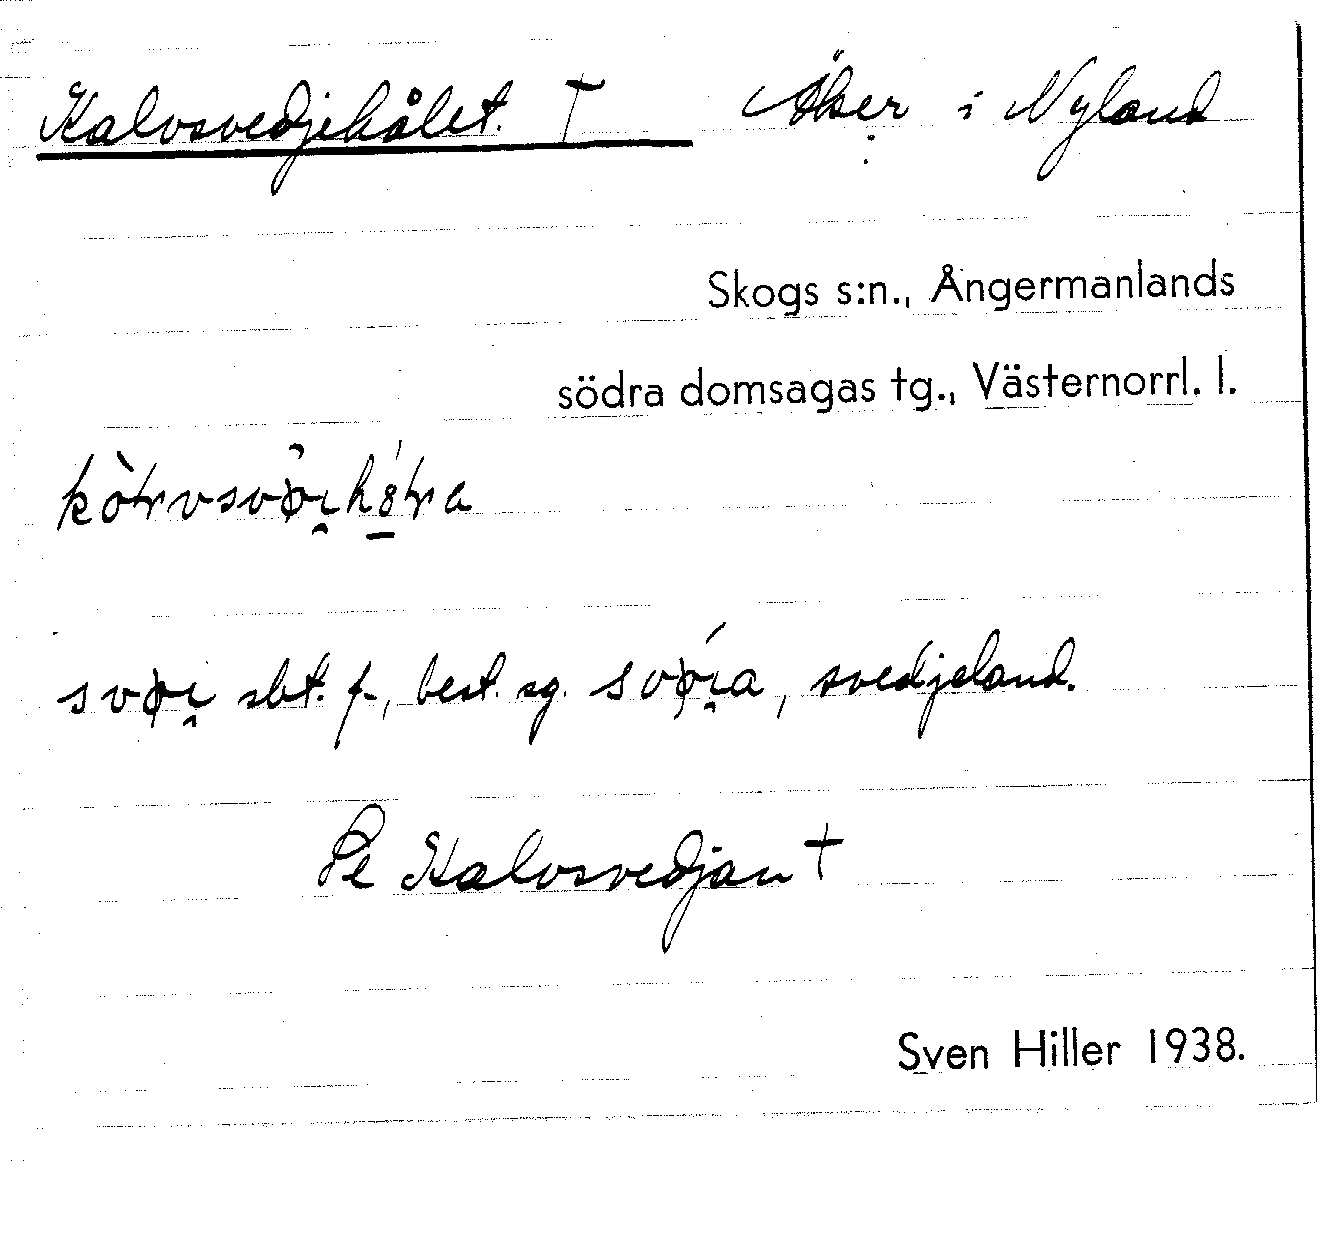 Kalvsvedjehålet. † Åker i Nyland
Skogs s:n., Ångermanlands
södra domsagas tg., Västernorrl. l.
sbt. f., best. sg. , svedjeland.
Se Kalvsvedjan †
Sven Hiller 1938.